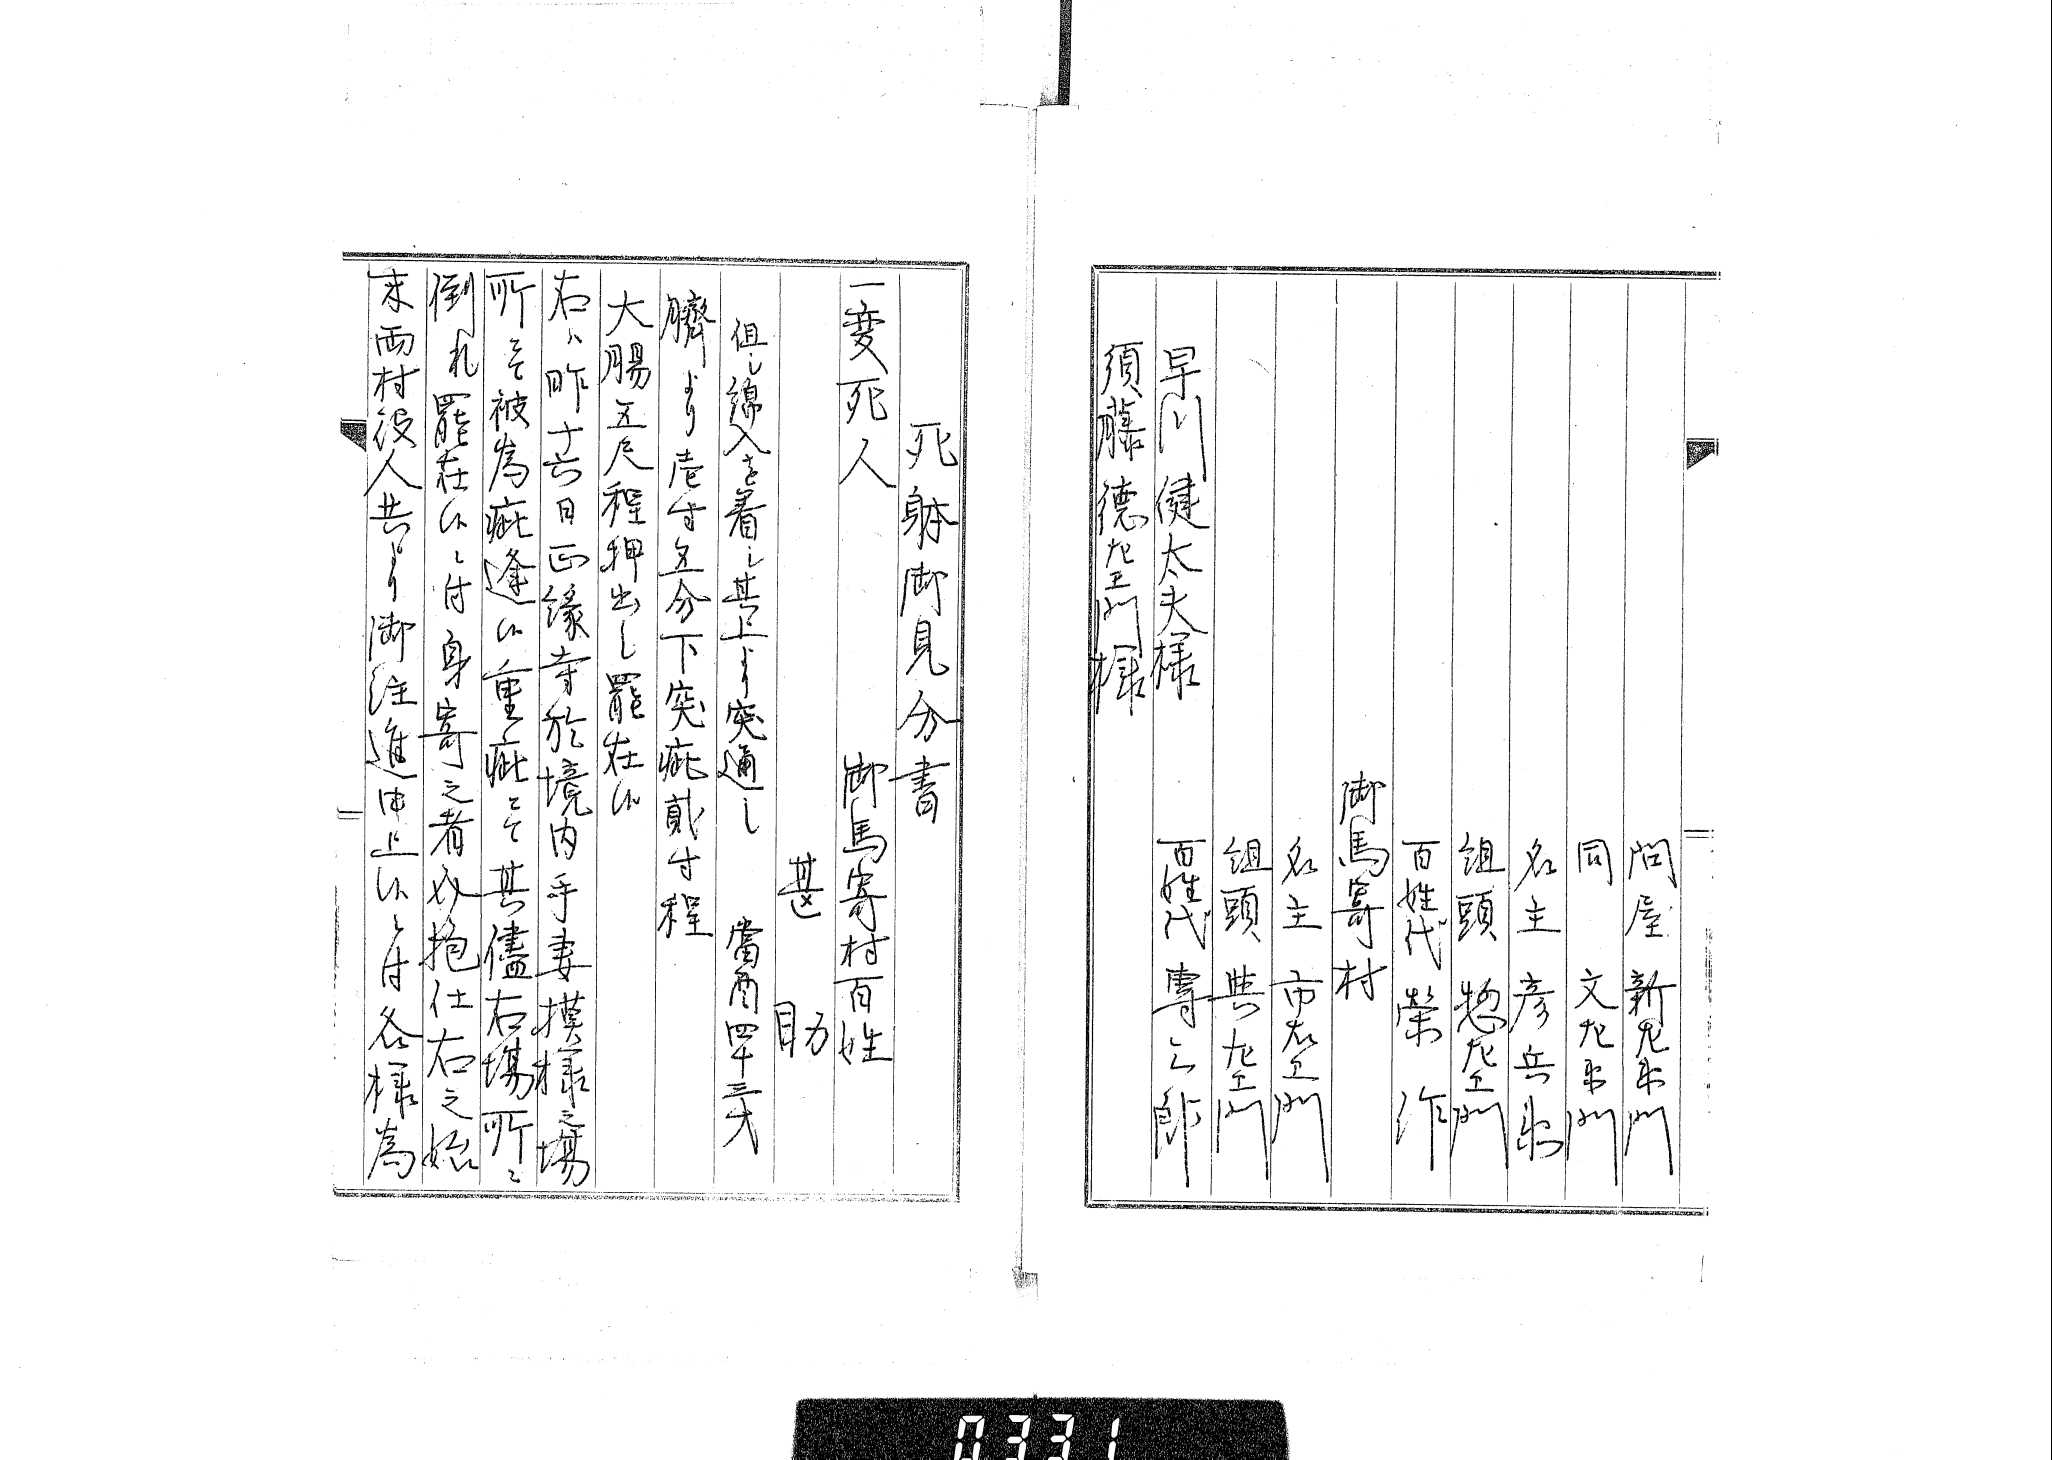 問屋 新左衛門
同 文左衛門
名主 彦兵衛
組頭 惣左エ門
百姓代 榮作
御馬寄村
名主 市右エ門
組頭 與左エ門
百姓代 專之郎
早川健太夫様
須藤徳左エ門様
死躰御見分書
一変死人 御馬寄村百姓
甚助
當酉四十三才
但し綿入を着し其上より突通し
臍より壱寸五分下突疵貮寸程
大腸五尺程押出し罷在候
右ハ昨十六日正縁寺於境内手妻摸様之場
所ニ而被為疵逢候重疵ニて其儘右場所ニ
倒れ罷在候ニ付身寄之者介抱仕右之始
末両村役人共より御注進申上候ニ付各様為
0331